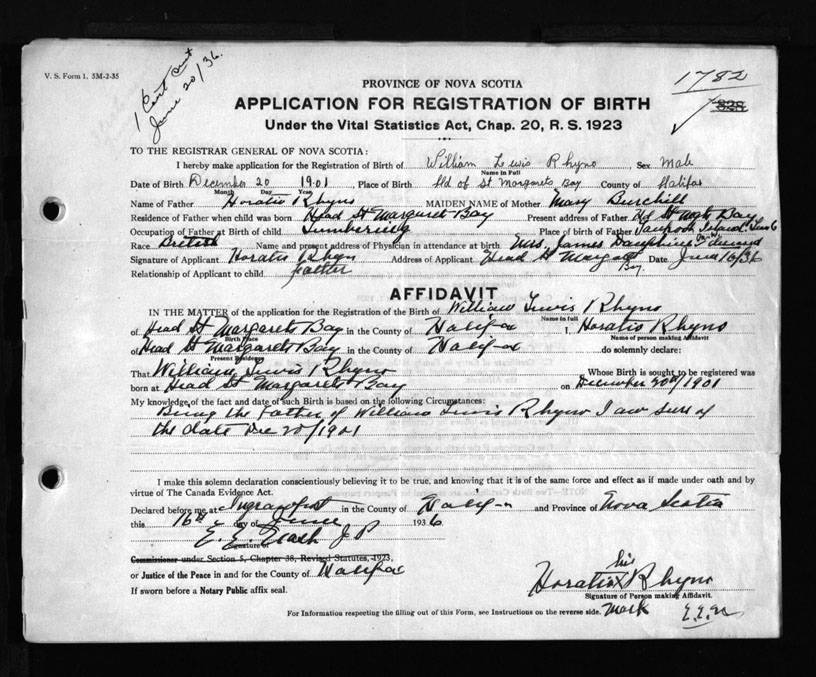 V. S. Form 1, 5M-2-35
1 Cert sent
June 20/36.
1782
828
PROVINCE OF NOVA SCOTIA
APPLICATION FOR REGISTRATION OF BIRTH
Under the Vital Statistics Act, Chap. 20, R. S. 1923
TO THE REGISTRAR GENERAL OF NOVA SCOTIA:
I hereby make application for the Registration of Birth of William Lewis Rhyno Sex Male
Name in Full
Date of Birth December 20 1901 Place of Birth Hd of St Margarets Bay County of Halifax
Month Day Year
Name of Father Horatio Rhyno MAIDEN NAME of Mother Mary Burchill
Residence of Father when child was born Head St Margaret Bay Present address of Father Hd St Mgts Bay
Occupation of Father at Birth of Child Lumbering Place of birth of Father Island
Race British Name and present address of Physician in attendance at birth Mrs. James Dauphinee
Signature of Applicant Horatio Rhyno Address of Applicant Head St Margaret Bay Date June 16/36
Relationship of Applicant to child father
AFFIDAVIT
IN THE MATTER of the application for the Registration of the Birth of William Lewis Rhyno
Name in full
of Head St Margarets Bay in the County of Halifax I, Horatio Rhyno
Birth Place Name of person making Affidavit
of Head St Margarets Bay in the County of Halifax do solemnly declare:
Present Residence
That William Lewis Rhyno Whose Birth is sought to be registered was
born at Head St Margarets Bay on December 20th/1901
My knowledge of the fact and date of such Birth is based on the following Circumstances:
Being the Father of William Lewis Rhyno I am sure of
the date Dec 20/1901
I make this solemn declaration conscientiously believing it to be true, and knowing that it is of the same force and effect as if made under oath and by
virtue of The Canada Evidence Act.
Declared before me at Ingramport in the County of Halifax and Province of Nova Scotia
this 16th day of June 1936
E. E. Nash J P
Signature of
Commissioner under Section 5, Chapter 38, Revised Statutes, 1923,
or Justice of the Peace in and for the County of Halifax
If sworn before a Notary Public affix seal.
his
Horatio X Rhyno
Signature of Person making Affidavit.
mark E.E.N
For Information respecting the filling out of this Form, see Instructions on the reverse side.